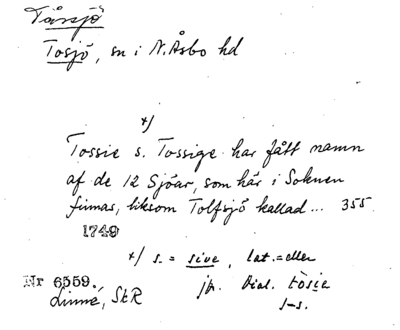 Tåssjö
Tosjö, sn i N. Åsbo hd
x/
Tossie s. Tossige har fått namn
af de 12 Sjöar, som här i Soknen
finnas, liksom Tolfsjö kallad... 355
1749
x/ s. = sive, lat. = eller
Nr 6559. jfr. Dial. tòsie
Linné, SkR s-s.